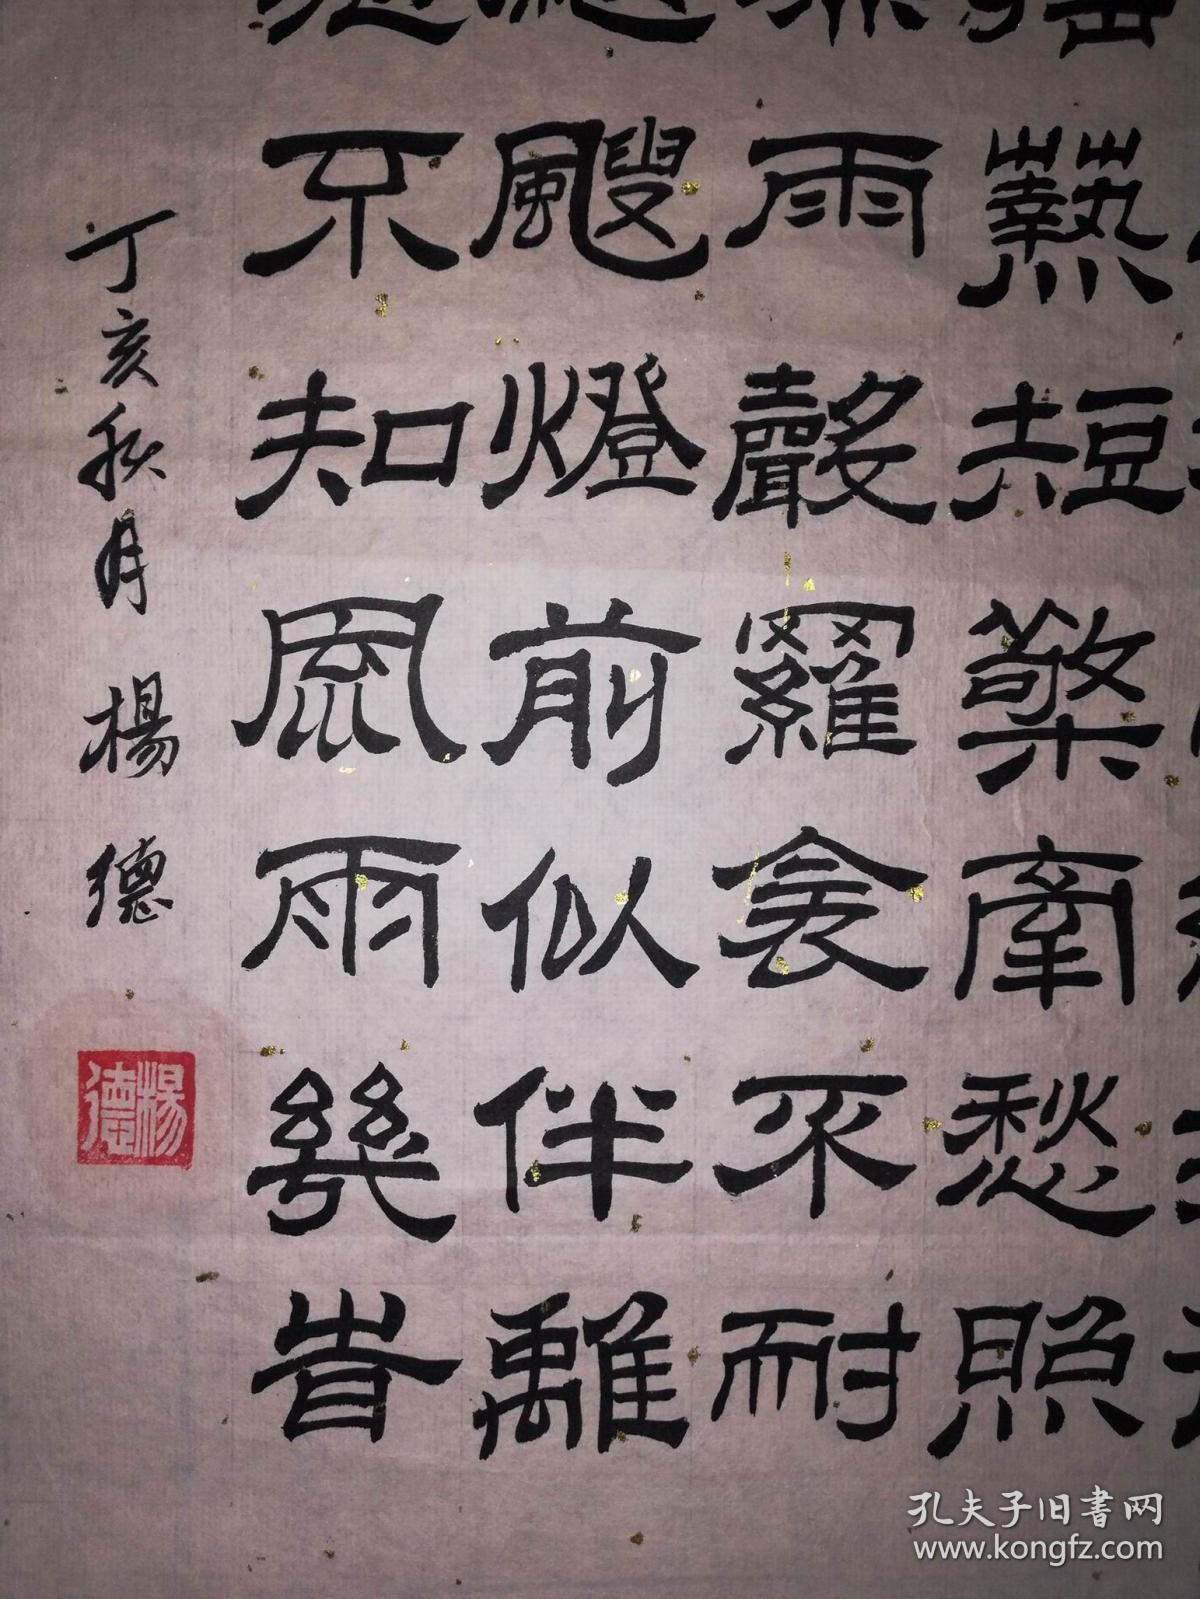 爇短檠牽愁照
雨聲羅衾不耐
颼燈前似伴離
不知風雨幾旹
丁亥秋月 楊德
楊德
孔夫子旧書网
www.kongfz.com